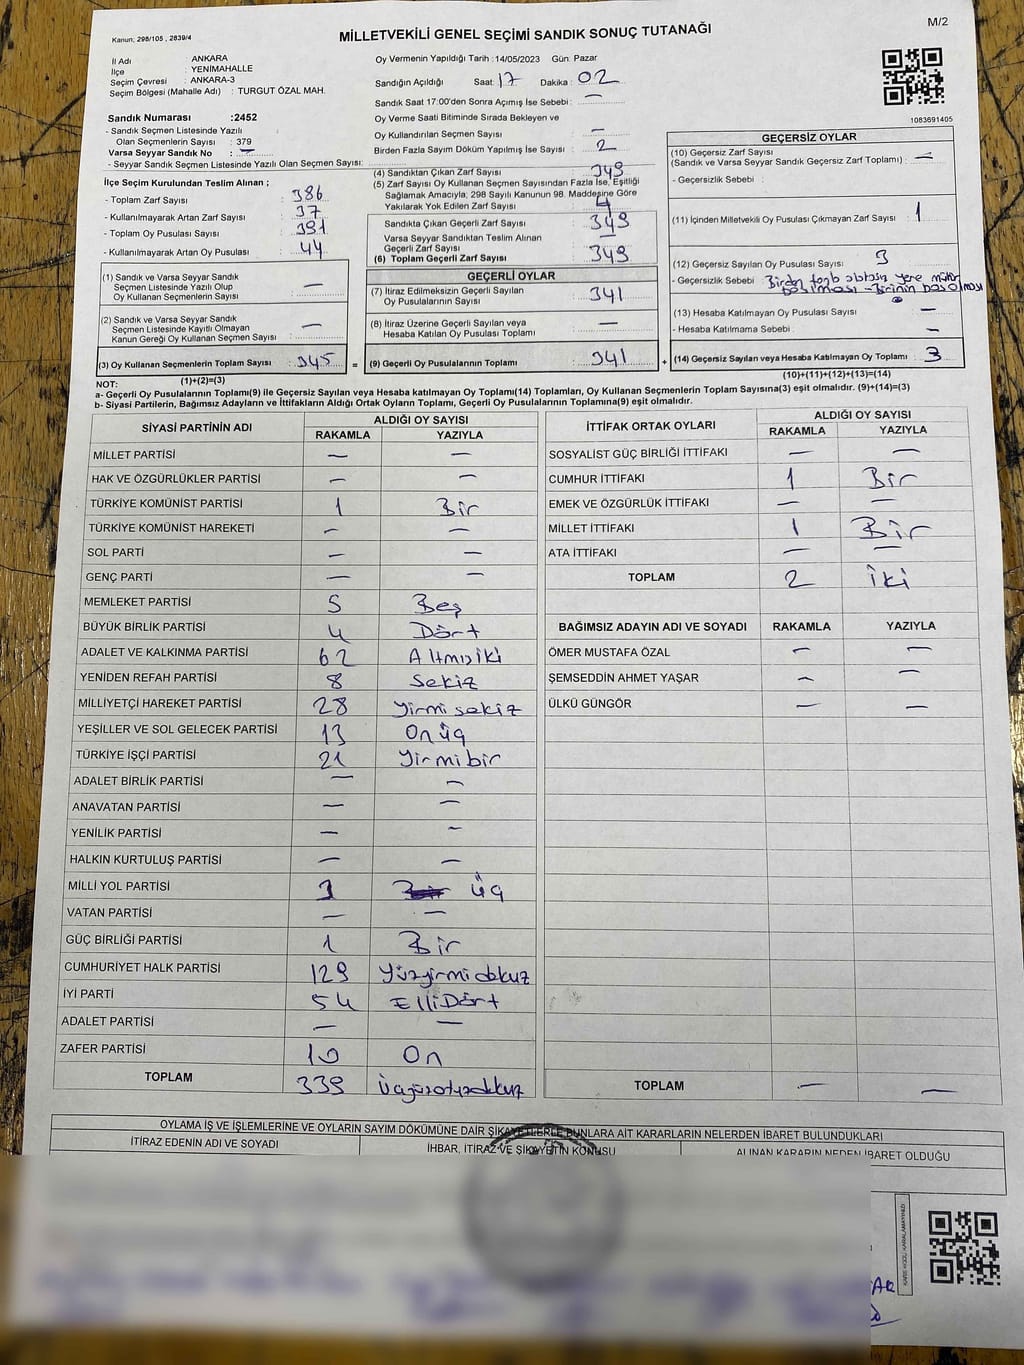 M/2
Kanun: 298/105 , 2839/4
MİLLETVEKİLİ GENEL SEÇİMİ SANDIK SONUÇ TUTANAĞI
İl Adı : ANKARA
İlçe : YENİMAHALLE
Seçim Çevresi : ANKARA-3
Seçim Bölgesi (Mahalle Adı) : TURGUT ÖZAL MAH.
Sandık Numarası :2452
- Sandık Seçmen Listesinde Yazılı
Olan Seçmenlerin Sayısı : 379
Varsa Seyyar Sandık No : —
- Seyyar Sandık Seçmen Listesinde Yazılı Olan Seçmen Sayısı:
İlçe Seçim Kurulundan Teslim Alınan ;
- Toplam Zarf Sayısı : 386
- Kullanılmayarak Artan Zarf Sayısı : 37
- Toplam Oy Pusulası Sayısı : 391
- Kullanılmayarak Artan Oy Pusulası : 44
(1) Sandık ve Varsa Seyyar Sandık
Seçmen Listesinde Yazılı Olup
Oy Kullanan Seçmenlerin Sayısı : —
(2) Sandık ve Varsa Seyyar Sandık
Seçmen Listesinde Kayıtlı Olmayan
Kanun Gereği Oy Kullanan Seçmen Sayısı : —
(3) Oy Kullanan Seçmenlerin Toplam Sayısı : 345
(1)+(2)=(3)
Oy Vermenin Yapıldığı Tarih : 14/05/2023 Gün: Pazar
Sandığın Açıldığı Saat: 17 Dakika : 02
Sandık Saat 17:00'den Sonra Açımış İse Sebebi : —
Oy Verme Saati Bitiminde Sırada Bekleyen ve
Oy Kullandırılan Seçmen Sayısı : —
Birden Fazla Sayım Döküm Yapılmış İse Sayısı : 2
(4) Sandıktan Çıkan Zarf Sayısı : 349
(5) Zarf Sayısı Oy Kullanan Seçmen Sayısından Fazla İse, Eşitliği
Sağlamak Amacıyla; 298 Sayılı Kanunun 98. Maddesine Göre
Yakılarak Yok Edilen Zarf Sayısı : 4
Sandıkta Çıkan Geçerli Zarf Sayısı : 349
Varsa Seyyar Sandıktan Teslim Alınan
Geçerli Zarf Sayısı : —
(6) Toplam Geçerli Zarf Sayısı : 349
GEÇERLİ OYLAR
(7) İtiraz Edilmeksizin Geçerli Sayılan
Oy Pusulalarının Sayısı : 341
(8) İtiraz Üzerine Geçerli Sayılan veya
Hesaba Katılan Oy Pusulası Toplamı : —
= (9) Geçerli Oy Pusulalarının Toplamı : 341 +
1083691405
GEÇERSİZ OYLAR
(10) Geçersiz Zarf Sayısı
(Sandık ve Varsa Seyyar Sandık Geçersiz Zarf Toplamı) : —
- Geçersizlik Sebebi :
(11) İçinden Milletvekili Oy Pusulası Çıkmayan Zarf Sayısı : 1
(12) Geçersiz Sayılan Oy Pusulası Sayısı : 3
- Geçersizlik Sebebi : Birden fazla yere mühür
basılması - Birinin
(13) Hesaba Katılmayan Oy Pusulası Sayısı : —
- Hesaba Katılmama Sebebi : —
(14) Geçersiz Sayılan veya Hesaba Katılmayan Oy Toplamı : 3
(10)+(11)+(12)+(13)=(14)
NOT:
a- Geçerli Oy Pusulalarının Toplamı(9) ile Geçersiz Sayılan veya Hesaba katılmayan Oy Toplamı(14) Toplamları, Oy Kullanan Seçmenlerin Toplam Sayısına(3) eşit olmalıdır. (9)+(14)=(3)
b- Siyasi Partilerin, Bağımsız Adayların ve İttifakların Aldığı Ortak Oyların Toplamı, Geçerli Oy Pusulalarının Toplamına(9) eşit olmalıdır.
SİYASİ PARTİNİN ADI ALDIĞI OY SAYISI
RAKAMLA YAZIYLA
MİLLET PARTİSİ — —
HAK VE ÖZGÜRLÜKLER PARTİSİ — —
TÜRKİYE KOMÜNİST PARTİSİ 1 Bir
TÜRKİYE KOMÜNİST HAREKETİ — —
SOL PARTİ — —
GENÇ PARTİ — —
MEMLEKET PARTİSİ 5 Beş
BÜYÜK BİRLİK PARTİSİ 4 Dört
ADALET VE KALKINMA PARTİSİ 62 Altmışiki
YENİDEN REFAH PARTİSİ 8 Sekiz
MİLLİYETÇİ HAREKET PARTİSİ 28 Yirmi sekiz
YEŞİLLER VE SOL GELECEK PARTİSİ 13 Onüç
TÜRKİYE İŞÇİ PARTİSİ 21 Yirmibir
ADALET BİRLİK PARTİSİ — —
ANAVATAN PARTİSİ — —
YENİLİK PARTİSİ — —
HALKIN KURTULUŞ PARTİSİ — —
MİLLİ YOL PARTİSİ 3 Üç
VATAN PARTİSİ — —
GÜÇ BİRLİĞİ PARTİSİ 1 Bir
CUMHURİYET HALK PARTİSİ 129 Yüzyirmidokuz
İYİ PARTİ 54 ElliDört
ADALET PARTİSİ — —
ZAFER PARTİSİ 10 On
TOPLAM 339 Üçyüzotuzdokuz
İTTİFAK ORTAK OYLARI ALDIĞI OY SAYISI
RAKAMLA YAZIYLA
SOSYALİST GÜÇ BİRLİĞİ İTTİFAKI — —
CUMHUR İTTİFAKI 1 Bir
EMEK VE ÖZGÜRLÜK İTTİFAKI — —
MİLLET İTTİFAKI 1 Bir
ATA İTTİFAKI — —
TOPLAM 2 İki
BAĞIMSIZ ADAYIN ADI VE SOYADI RAKAMLA YAZIYLA
ÖMER MUSTAFA ÖZAL — —
ŞEMSEDDİN AHMET YAŞAR — —
ÜLKÜ GÜNGÖR — —
TOPLAM — —
OYLAMA İŞ VE İŞLEMLERİNE VE OYLARIN SAYIM DÖKÜMÜNE DAİR ŞİKAYETLERLE BUNLARA AİT KARARLARIN NELERDEN İBARET BULUNDUKLARI
İTİRAZ EDENİN ADI VE SOYADI İHBAR, İTİRAZ VE ŞİKAYETİN KONUSU ALINAN KARARIN NEDEN İBARET OLDUĞU
KARE KODU KARALAMAYINIZ!